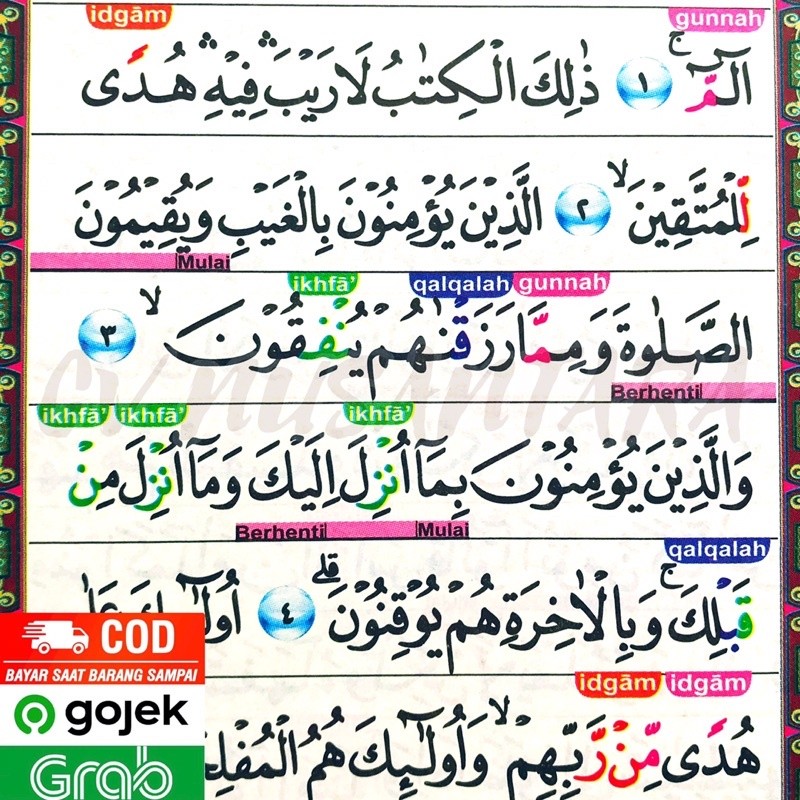 idgām gunnah
الٓمّٓ ۚ ١ ذٰلِكَ الْكِتٰبُ لَا رَيْبَ ۛ فِيْهِ ۛ هُدًى
لِّلْمُتَّقِيْنَ ۙ ٢ الَّذِيْنَ يُؤْمِنُوْنَ بِالْغَيْبِ وَيُقِيْمُوْنَ
Mulai
ikhfā' qalqalah gunnah
الصَّلٰوةَ وَمِمَّا رَزَقْنٰهُمْ يُنْفِقُوْنَ ۙ ٣
Berhenti
ikhfā' ikhfā' ikhfā'
وَالَّذِيْنَ يُؤْمِنُوْنَ بِمَآ اُنْزِلَ اِلَيْكَ وَمَآ اُنْزِلَ مِنْ
Berhenti Mulai
qalqalah
قَبْلِكَ ۚ وَبِالْاٰخِرَةِ هُمْ يُوْقِنُوْنَ ۗ ٤
idgām idgām
هُدًى مِّنْ رَّبِّهِمْ ۙ وَاُولٰۤىِٕكَ هُمُ
CV. NUSANTARA
COD
BAYAR SAAT BARANG SAMPAI
gojek
Grab